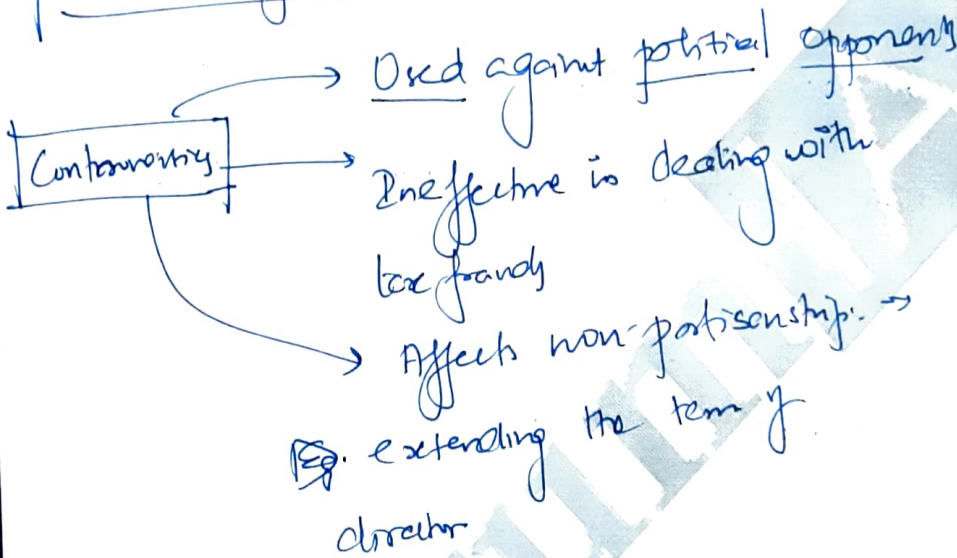 Used against political opponents
Controversies
Ineffective in dealing with
tax frauds
Affects non-partisanship. →
Eg. extending the term of
director